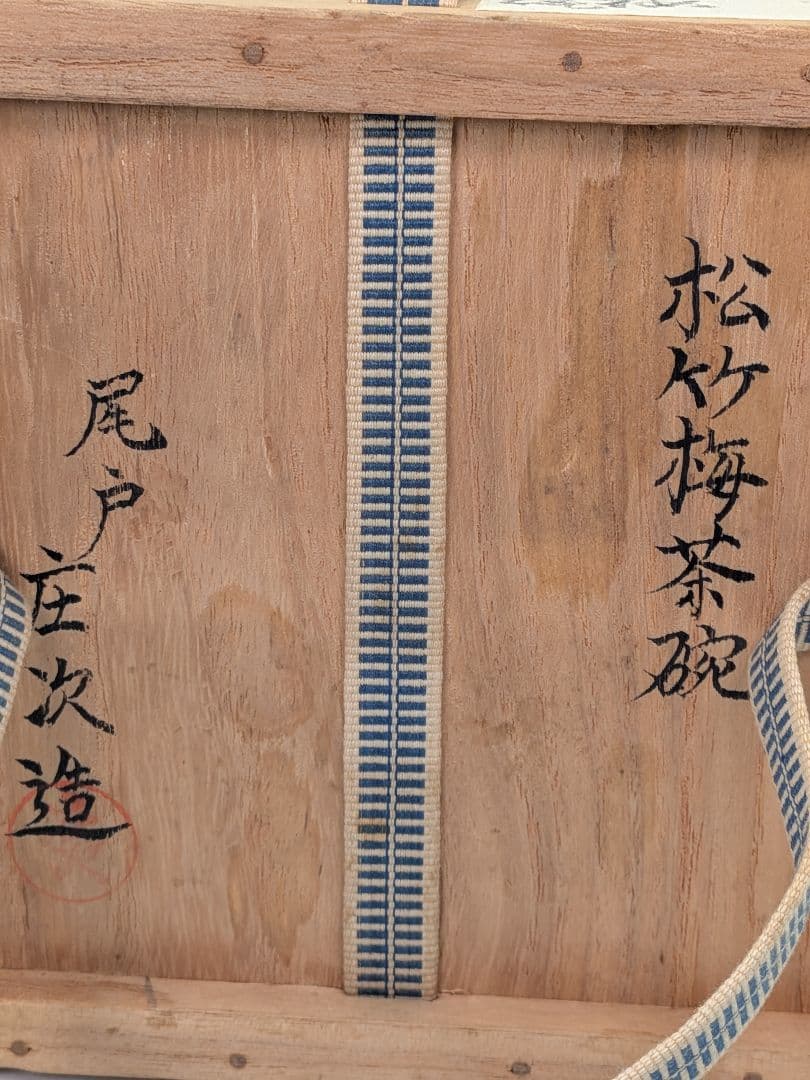 松竹梅茶碗
尾戸
庄次造